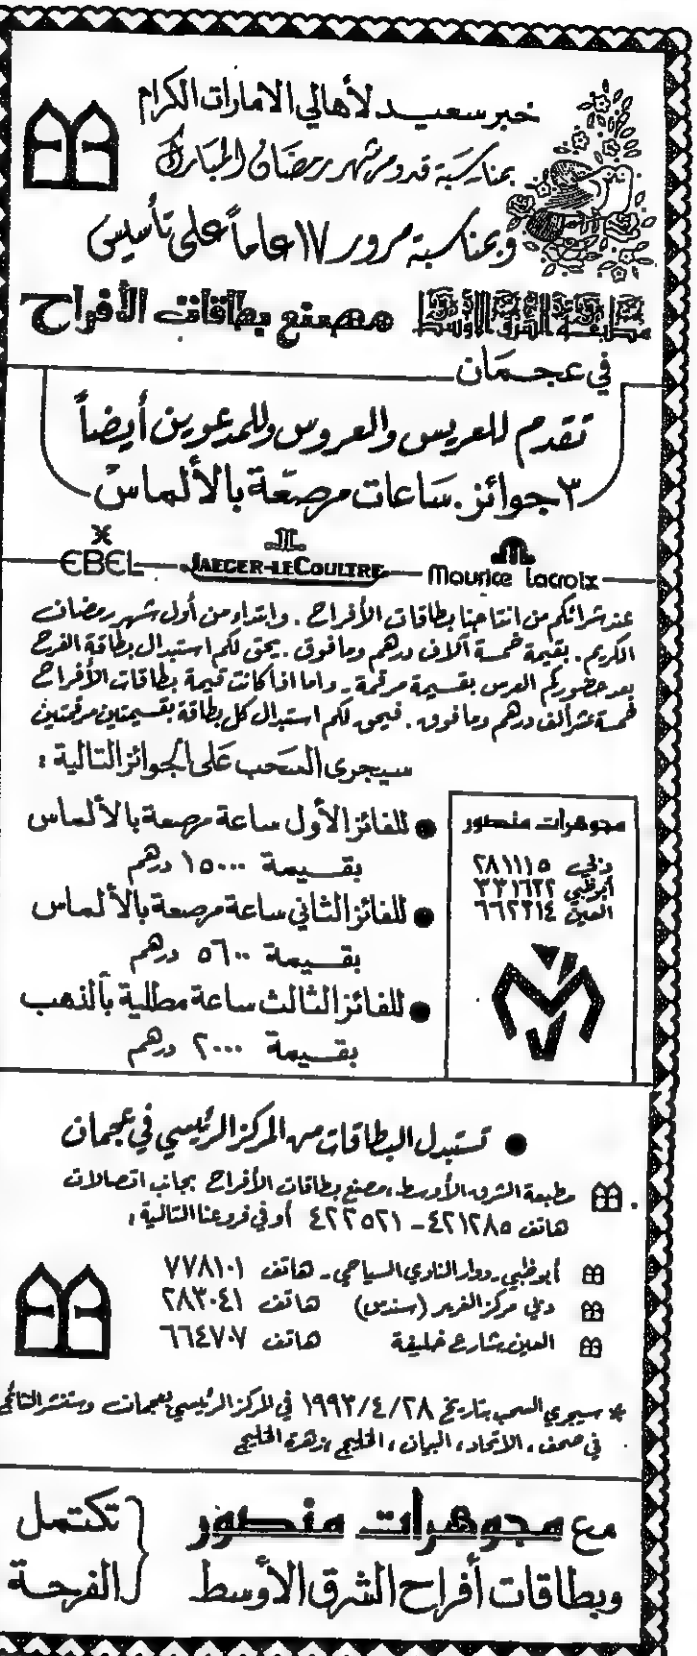 خبر سعيد لأهالي الامارات الكرام
بمناسبة قدوم شهر رمضان المبارك
وبمناسبة مرور ١٧ عاماً على تأسيس
مطبعة الشرق الأوسط مصنع بطاقات الأفراح
في عجمان
تقدم للعريس والعروس وللمدعوين أيضاً
٣ جوائز. ساعات مرصعة بالألماس
EBEL JAEGER-LECOULTRE Maurice Lacroix
عند شرائكم من انتاجنا بطاقات الأفراح. وابتداء من أول شهر رمضان
الكريم. بقيمة خمسة آلاف درهم وما فوق. يحق لكم استبدال بطاقة الفرح
بعد حضوركم العرس بقسيمة مرقمة. واما اذا كانت قيمة بطاقات الأفراح
خمسة عشر ألف درهم وما فوق. فيحق لكم استبدال كل بطاقة بقسيمتين مرقمتين
سيجرى السحب على الجوائز التالية:
• للفائز الأول ساعة مرصعة بالألماس
بقيمة ١٥٠٠٠ درهم
• للفائز الثاني ساعة مرصعة بالألماس
بقيمة ٥٦٠٠ درهم
• للفائز الثالث ساعة مطلية بالذهب
بقيمة ٢٠٠٠ درهم
مجوهرات منصور
دبي ٢٨١١١٥
أبوظبي ٣٣١٦٢٢
العين ٦٦٢٣١٤
• تستبدل البطاقات من المركز الرئيسي في عجمان
مطبعة الشرق الأوسط. مصنع بطاقات الأفراح بجانب اتصالات
هاتف ٤٢١٢٨٥ - ٤٢٢٥٢١ أو في فروعنا التالية:
أبوظبي. دوار النادي السياحي. هاتف ٧٧٨١٠١
دبي مركز الغرير (سندس) هاتف ٢٨٣٠٤١
العين. شارع خليفة هاتف ٦٦٤٧٠٧
* سيجري السحب بتاريخ ١٩٩٣/٤/٢٨ في المركز الرئيسي بعجمان وستنشر النتائج
في صحف، الاتحاد، البيان، الخليج، زهرة الخليج
مع مجوهرات منصور
وبطاقات أفراح الشرق الأوسط
تكتمل
الفرحة